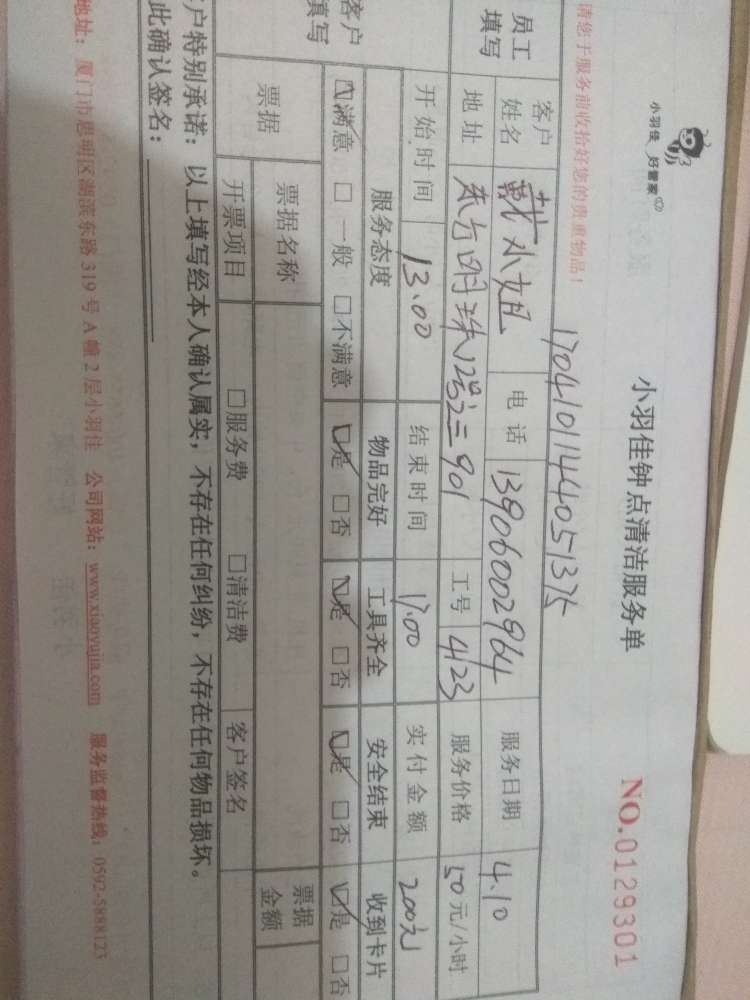 小羽佳 好管家
小羽佳钟点清洁服务单
NO.0129301
请您于服务前收拾好您的贵重物品！
1704101144051375
员工填写
客户姓名 戴小姐 电话 13906002964 服务日期 4.10
地址 东方明珠12号之三901 工号 4123 服务价格 50元/小时
开始时间 13.00 结束时间 17.00 实付金额 200元
客户填写
服务态度 物品完好 工具齐全 安全结束 收到卡片
☑满意 □一般 □不满意 ☑是 □否 ☑是 □否 ☑是 □否 ☑是 □否
票据 票据名称 票据金额
开票项目 □服务费 □清洁费 客户签名
户特别承诺：以上填写经本人确认属实，不存在任何纠纷，不存在任何物品损坏。
此确认签名：
地址：厦门市思明区湖滨东路319号A幢2层小羽佳 公司网站：www.xiaoyujia.com 服务监督热线：0592-5888123